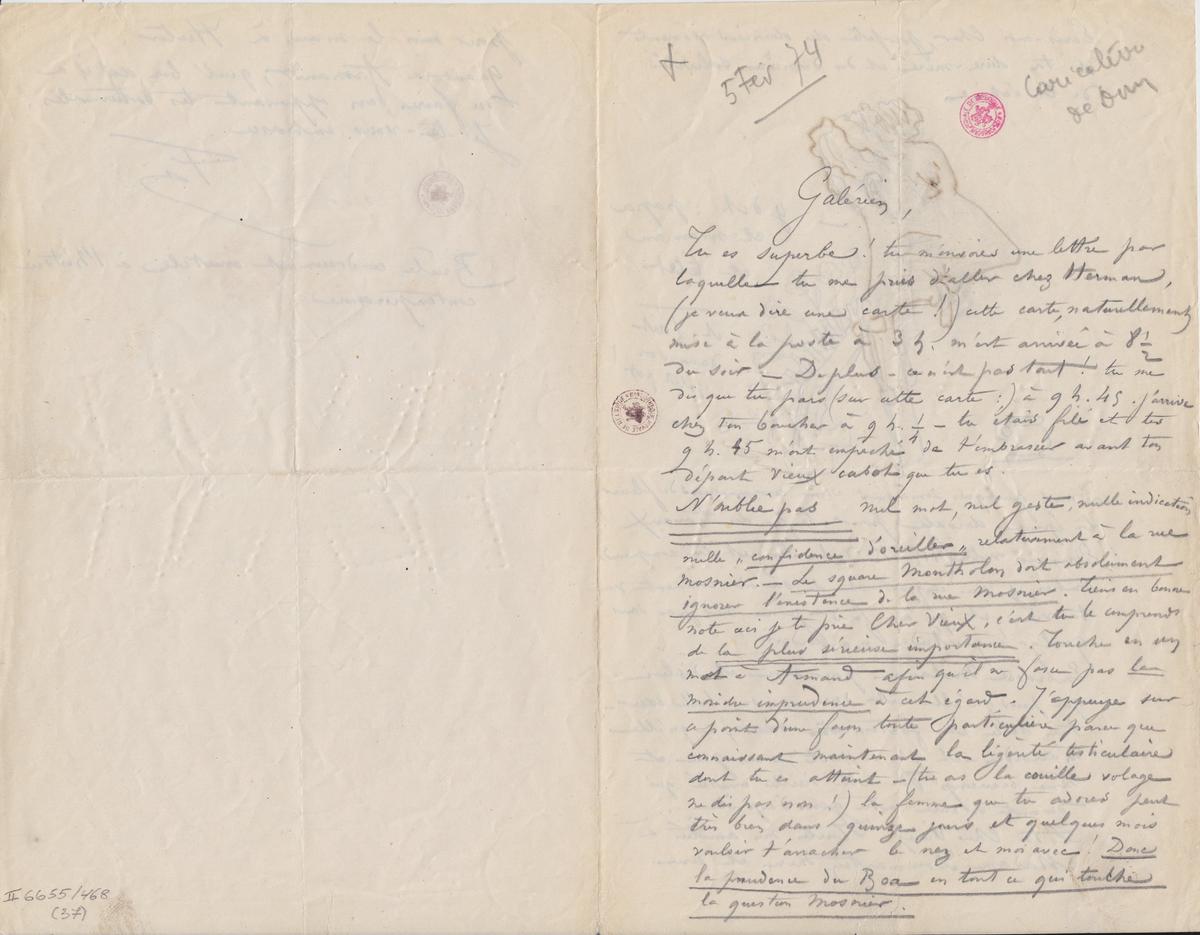 5 Fév 74
Caricature
de Dun
Galérien,
Tu es superbe ! tu m'envoies une lettre par
laquelle tu me pries d'aller chez Herman,
(je veux dire une carte !) cette carte, naturellement
mise à la poste à 3 h. m'est arrivée à 8 1/2
du soir — De plus — ce n'est pas tout ! tu me
dis que tu pars (sur cette carte :) à 9 h. 45. j'arrive
chez ton boucher à 9 h. 1/4 — tu étais filé et tes
9 h. 45 m'ont empêché de t'embrasser avant ton
départ vieux cabot que tu es.
N'oublie pas nul mot, nul geste, nulle indication
nulle „ confidence d'oreiller „ relativement à la rue
Mosnier. — Le square Montholon doit absolument
ignorer l'existence de la rue Mosnier. Tiens en bonne
note ceci je te prie Cher Vieux, c'est tu le comprends
de la plus sérieuse importance. Touches en un
mot à Armand afin qu'il ne fasse pas la
moindre imprudence à cet égard. J'appuye sur
ce point d'une façon toute particulière parce que
connaissant maintenant la légèreté testiculaire
dont tu es atteint — (tu as la couille volage
ne dis pas non !) la femme que tu adores peut
très bien dans quinze jours et quelques mois
vouloir t'arracher le nez et moi avec ! Donc
la prudence du Boa en tout ce qui touche
la question Mosnier.
II 6655/468
(37)